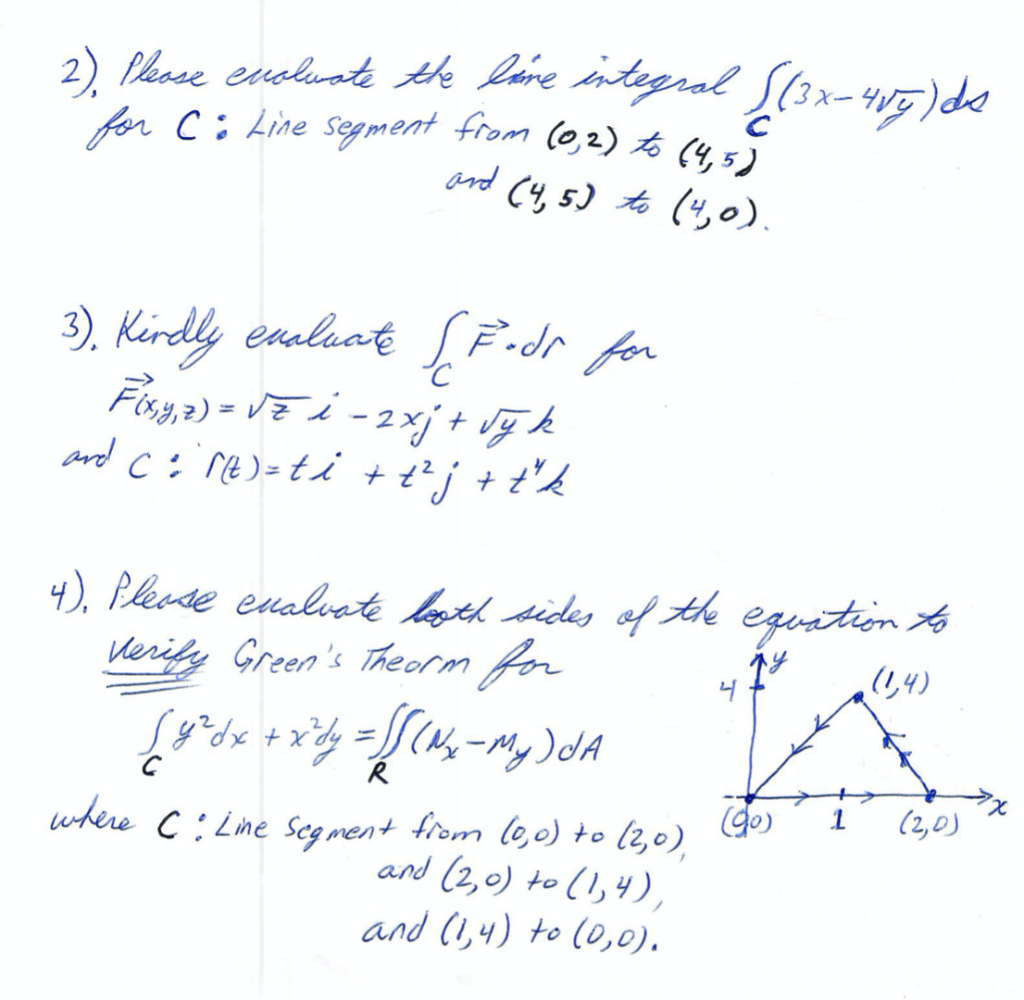 2). Please evaluate the line integral ∫_C (3x-4√y) ds
for C: Line segment from (0,2) to (4,5)
and (4,5) to (4,0).
3). Kindly evaluate ∫_C F⃗·dr for
F⃗(x,y,z) = √z i - 2xj + √y k
and C: r(t) = ti + t²j + t⁴k
4). Please evaluate both sides of the equation to
verify Green's Theorm for
∫_C y²dx + x²dy = ∬_R (Nx-My)dA
where C: Line Segment from (0,0) to (2,0),
and (2,0) to (1,4),
and (1,4) to (0,0).
y
4
(1,4)
(0,0)
1
(2,0)
x